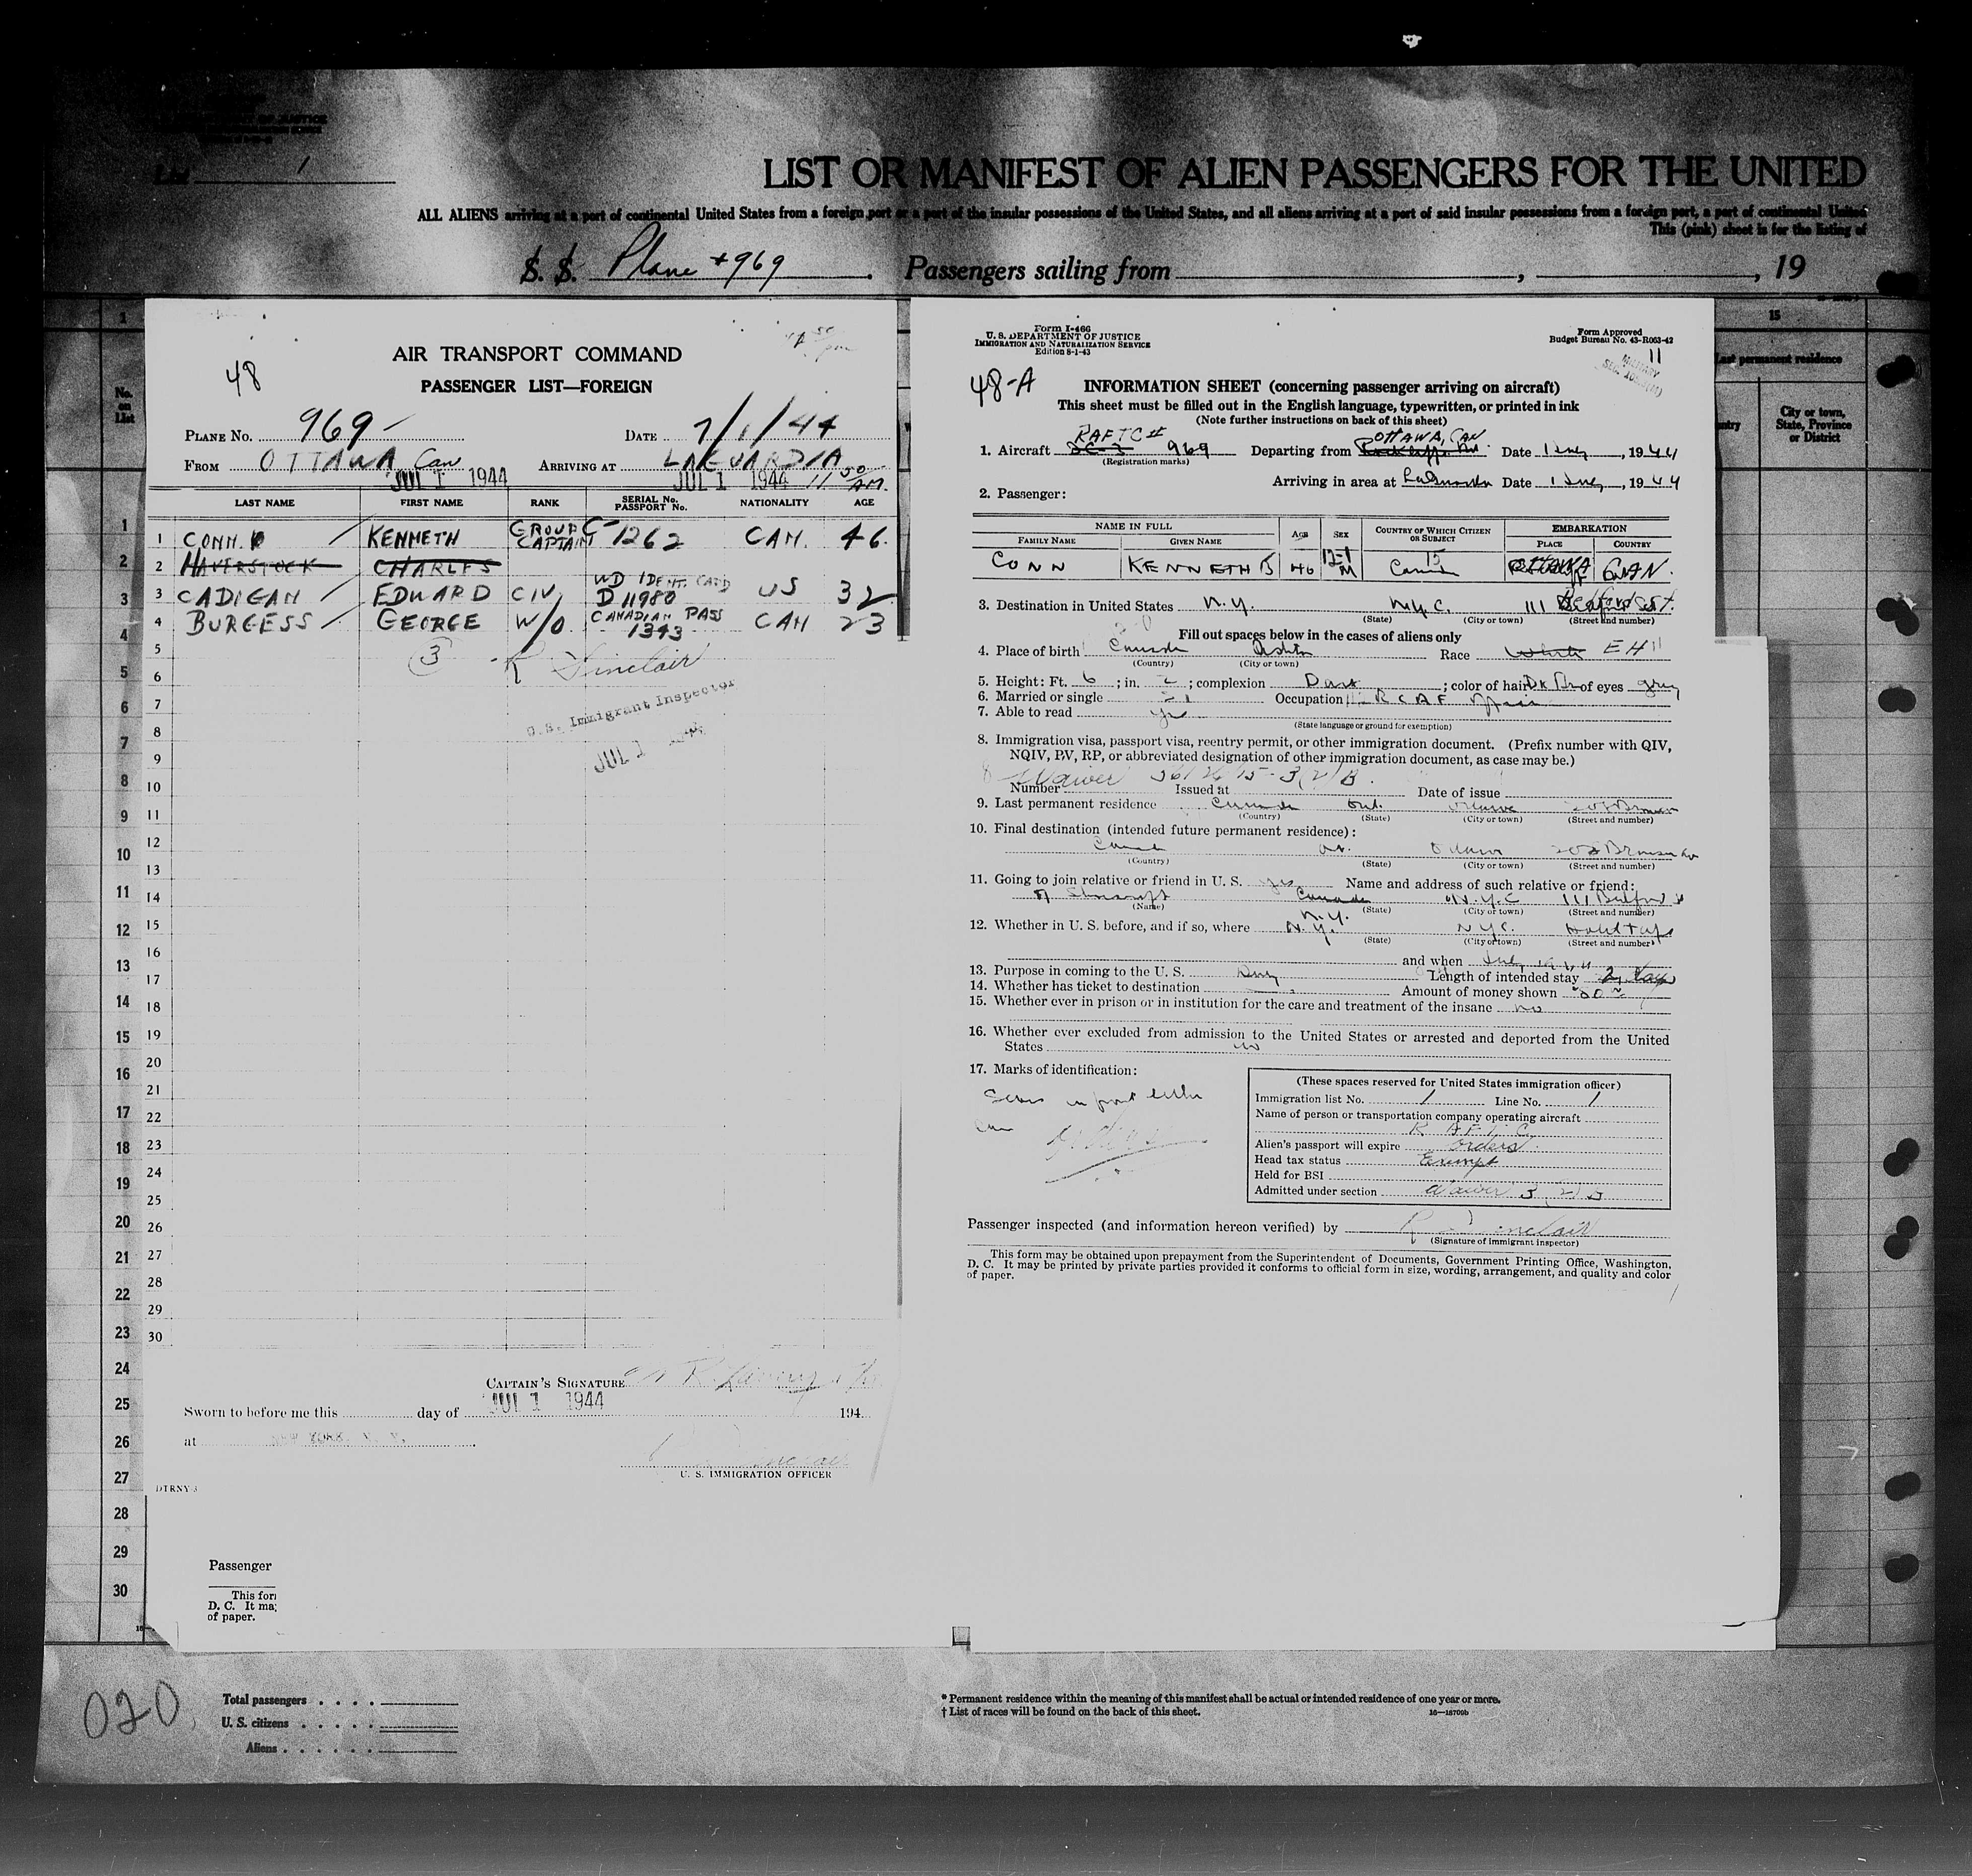 DEPARTMENT OF JUSTICE
List 1
LIST OR MANIFEST OF ALIEN PASSENGERS FOR THE UNITED
ALL ALIENS arriving at a port of continental United States from a foreign port or a port of the insular possessions of the United States, and all aliens arriving at a port of said insular possessions from a foreign port, a port of continental United
This (pink) sheet is for the listing of
S. S. Plane #969. Passengers sailing from , , 19
1
15
No. on List
Last permanent residence
City or town, State, Province or District
1
2
3
4
5
6
7
8
9
10
11
12
13
14
15
16
17
18
19
20
21
22
23
24
25
26
27
28
29
30
48
AIR TRANSPORT COMMAND
PASSENGER LIST—FOREIGN
PLANE No. 969 DATE 7/1/44
FROM OTTAWA Can ARRIVING AT LAGUARDIA
JUL 1 1944 JUL 1 1944 11 50 AM.
LAST NAME FIRST NAME RANK SERIAL No. PASSPORT No. NATIONALITY AGE
1 CONN. KENNETH GROUP CAPTAIN C-1262 CAN. 46
2 HAVERSTOCK CHARLES
3 CADIGAN EDWARD CIV. WD IDENT. CARD D 11980 US 32
4 BURGESS GEORGE W/O CANADIAN PASS 1343 CAN 23
5
6
7
8
9
10
11
12
13
14
15
16
17
18
19
20
21
22
23
24
25
26
27
28
29
30
3 R Sinclair
U.S. Immigrant Inspector
JUL 1
CAPTAIN'S SIGNATURE
JUL 1 1944
Sworn to before me this day of 194
at NEW YORK, N. Y.
U. S. IMMIGRATION OFFICER
DTRNY-3
Passenger
This for
D. C. It ma
of paper.
Form I-466
U. S. DEPARTMENT OF JUSTICE
IMMIGRATION AND NATURALIZATION SERVICE
Edition 8-1-43
Form Approved
Budget Bureau No. 43-R063-42
11
48-A
INFORMATION SHEET (concerning passenger arriving on aircraft)
This sheet must be filled out in the English language, typewritten, or printed in ink
(Note further instructions on back of this sheet)
RAFTC# OTTAWA, CAN
1. Aircraft 969 Departing from Date 1 July, 1944
(Registration marks)
Arriving in area at LaGuardia Date 1 July, 1944
2. Passenger:
NAME IN FULL AGE SEX COUNTRY OF WHICH CITIZEN OR SUBJECT EMBARKATION
FAMILY NAME GIVEN NAME PLACE COUNTRY
CONN KENNETH B 46 M Canada 15 OTTAWA CAN.
3. Destination in United States N.Y. N.Y.C. 111 Bedford St.
(State) (City or town) (Street and number)
Fill out spaces below in the cases of aliens only
4. Place of birth Canada Ashton Race White
(Country) (City or town)
5. Height: Ft. 6; in. 2; complexion Dark; color of hair Dk Br of eyes grey
6. Married or single Occupation RCAF Officer
7. Able to read yes
(State language or ground for exemption)
8. Immigration visa, passport visa, reentry permit, or other immigration document. (Prefix number with QIV,
NQIV, PV, RP, or abbreviated designation of other immigration document, as case may be.)
Waiver 3(2)B.
Number Issued at Date of issue
9. Last permanent residence Canada Ont. Ottawa
(Country) (State) (City or town) (Street and number)
10. Final destination (intended future permanent residence):
Canada Ont. Ottawa 202 Bronson Av
(Country) (State) (City or town) (Street and number)
11. Going to join relative or friend in U. S. yes Name and address of such relative or friend:
N.Y.C 111 Bedford St
(Name) (State) (City or town) (Street and number)
N.Y.
12. Whether in U. S. before, and if so, where N.Y. NYC. Hotel Taft
(State) (City or town) (Street and number)
and when
13. Purpose in coming to the U. S. Duty Length of intended stay 2 days
14. Whether has ticket to destination Amount of money shown
15. Whether ever in prison or in institution for the care and treatment of the insane no
16. Whether ever excluded from admission to the United States or arrested and deported from the United
States no
17. Marks of identification:
(These spaces reserved for United States immigration officer)
Immigration list No. 1 Line No. 1
Name of person or transportation company operating aircraft
R A F T C
Alien's passport will expire orders
Head tax status Exempt
Held for BSI
Admitted under section Waiver 3(2)B
Passenger inspected (and information hereon verified) by R Sinclair
(Signature of immigrant inspector)
This form may be obtained upon prepayment from the Superintendent of Documents, Government Printing Office, Washington,
D. C. It may be printed by private parties provided it conforms to official form in size, wording, arrangement, and quality and color
of paper.
020
Total passengers
U. S. citizens
Aliens
* Permanent residence within the meaning of this manifest shall be actual or intended residence of one year or more.
† List of races will be found on the back of this sheet.
16—18709b